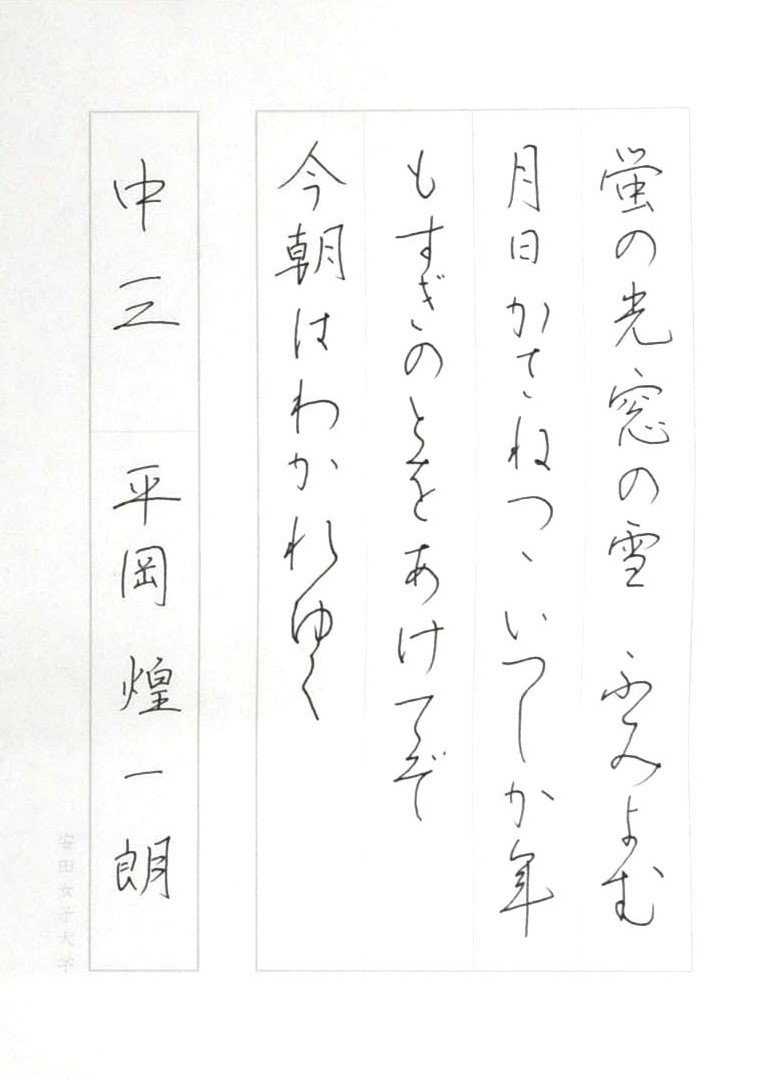 蛍の光窓の雪 ふみよむ
月日かさねつゝいつしか年
もすぎのとをあけてぞ
今朝はわかれゆく
中三 平岡煌一朗
安田女子大学